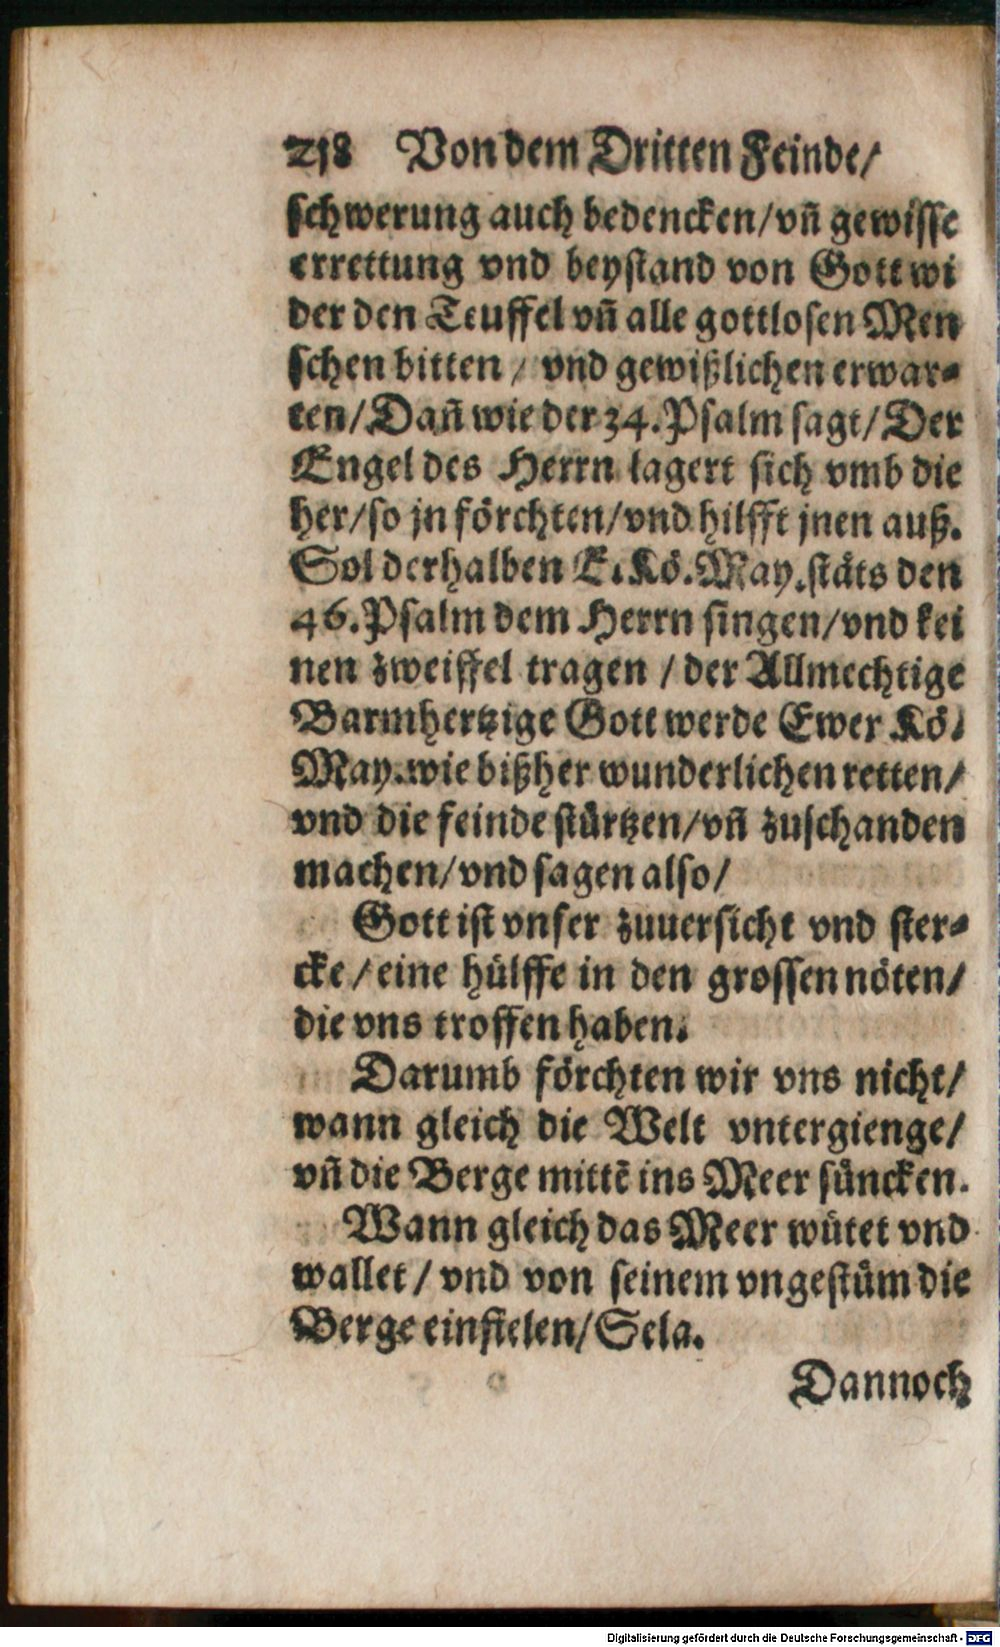 218 Von dem Dritten Feinde/
schwerung auch bedencken/vñ gewisse
errettung vnd beystand von Gott wi
der den Teuffel vñ alle gottlosen Men
schen bitten / vnd gewißlichen erwar⸗
ten/Dañ wie der 34. Psalm sagt/Der
Engel des Herrn lagert sich vmb die
her/so jn förchten/vnd hilfft jnen auß.
Sol derhalben E. Kö. May. stäts den
46. Psalm dem Herrn singen/vnd kei
nen zweiffel tragen / der Allmechtige
Barmhertzige Gott werde Ewer Kö.
May. wie bißher wunderlichen retten/
vnd die feinde stürtzen/vñ zuschanden
machen/vnd sagen also/
Gott ist vnser zuuersicht vnd ster⸗
cke / eine hülffe in den grossen nöten/
die vns troffen haben.
Darumb förchten wir vns nicht/
wann gleich die Welt vntergienge/
vñ die Berge mittē ins Meer süncken.
Wann gleich das Meer wütet vnd
wallet / vnd von seinem vngestüm die
Berge einfielen/Sela.
Dannoch
Digitalisierung gefördert durch die Deutsche Forschungsgemeinschaft - DFG